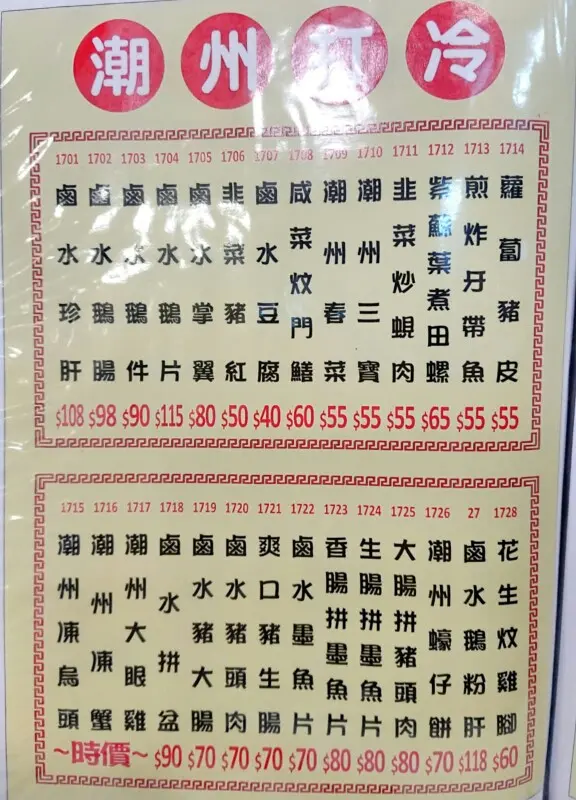 潮州打冷
1701 1702 1703 1704 1705 1706 1707 1708 1709 1710 1711 1712 1713 1714
鹵水珍肝
鹵水鵝腸
鹵水鵝件
鹵水鵝片
鹵水掌翼
韭菜豬紅
鹵水豆腐
咸菜炆門鱔
潮州春菜
潮州三寶
韭菜炒蜆肉
紫蘇葉煮田螺
煎炸牙帶魚
蘿蔔豬皮
$108 $98 $90 $115 $80 $50 $40 $60 $55 $55 $55 $65 $55 $55
1715 1716 1717 1718 1719 1720 1721 1722 1723 1724 1725 1726 27 1728
潮州凍烏頭
潮州凍蟹
潮州大眼雞
鹵水拼盆
鹵水豬大腸
鹵水豬頭肉
爽口豬生腸
鹵水墨魚片
香腸拼墨魚片
生腸拼墨魚片
大腸拼豬頭肉
潮州蠔仔餅
鹵水鵝粉肝
花生炆雞腳
~時價~ $90 $70 $70 $70 $70 $80 $80 $80 $70 $118 $60